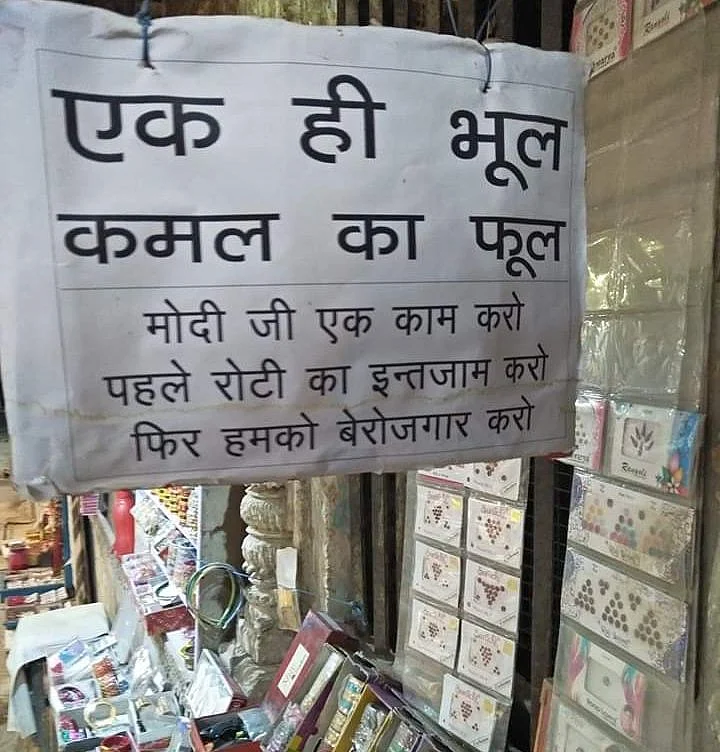 एक ही भूल
कमल का फूल
मोदी जी एक काम करो
पहले रोटी का इन्तजाम करो
फिर हमको बेरोजगार करो
Rangoli
Rangoli